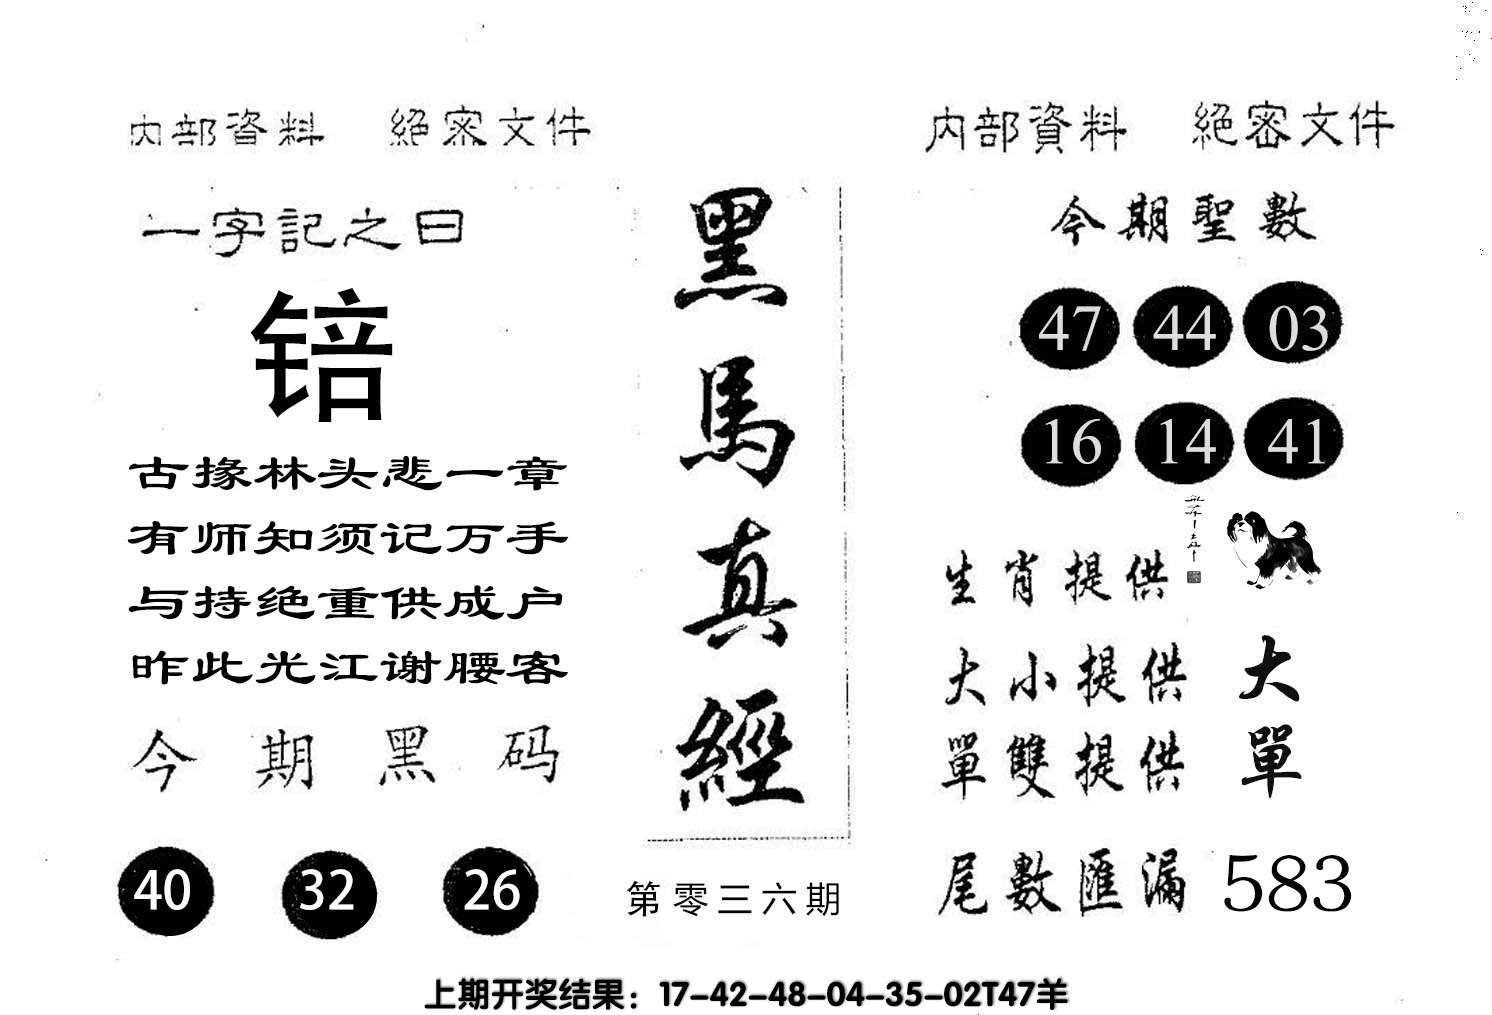 内部資料 絕密文件
一字記之曰
锫
古掾林头悲一章
有师知须记万手
与持绝重供成户
昨此光江谢腰客
今期黑码
40 32 26
黑馬真經
第零三六期
内部資料 絕密文件
今期聖數
47 44 03
16 14 41
生肖提供
大小提供 大
單雙提供 單
尾數匯漏 583
上期开奖结果：17-42-48-04-35-02T47羊